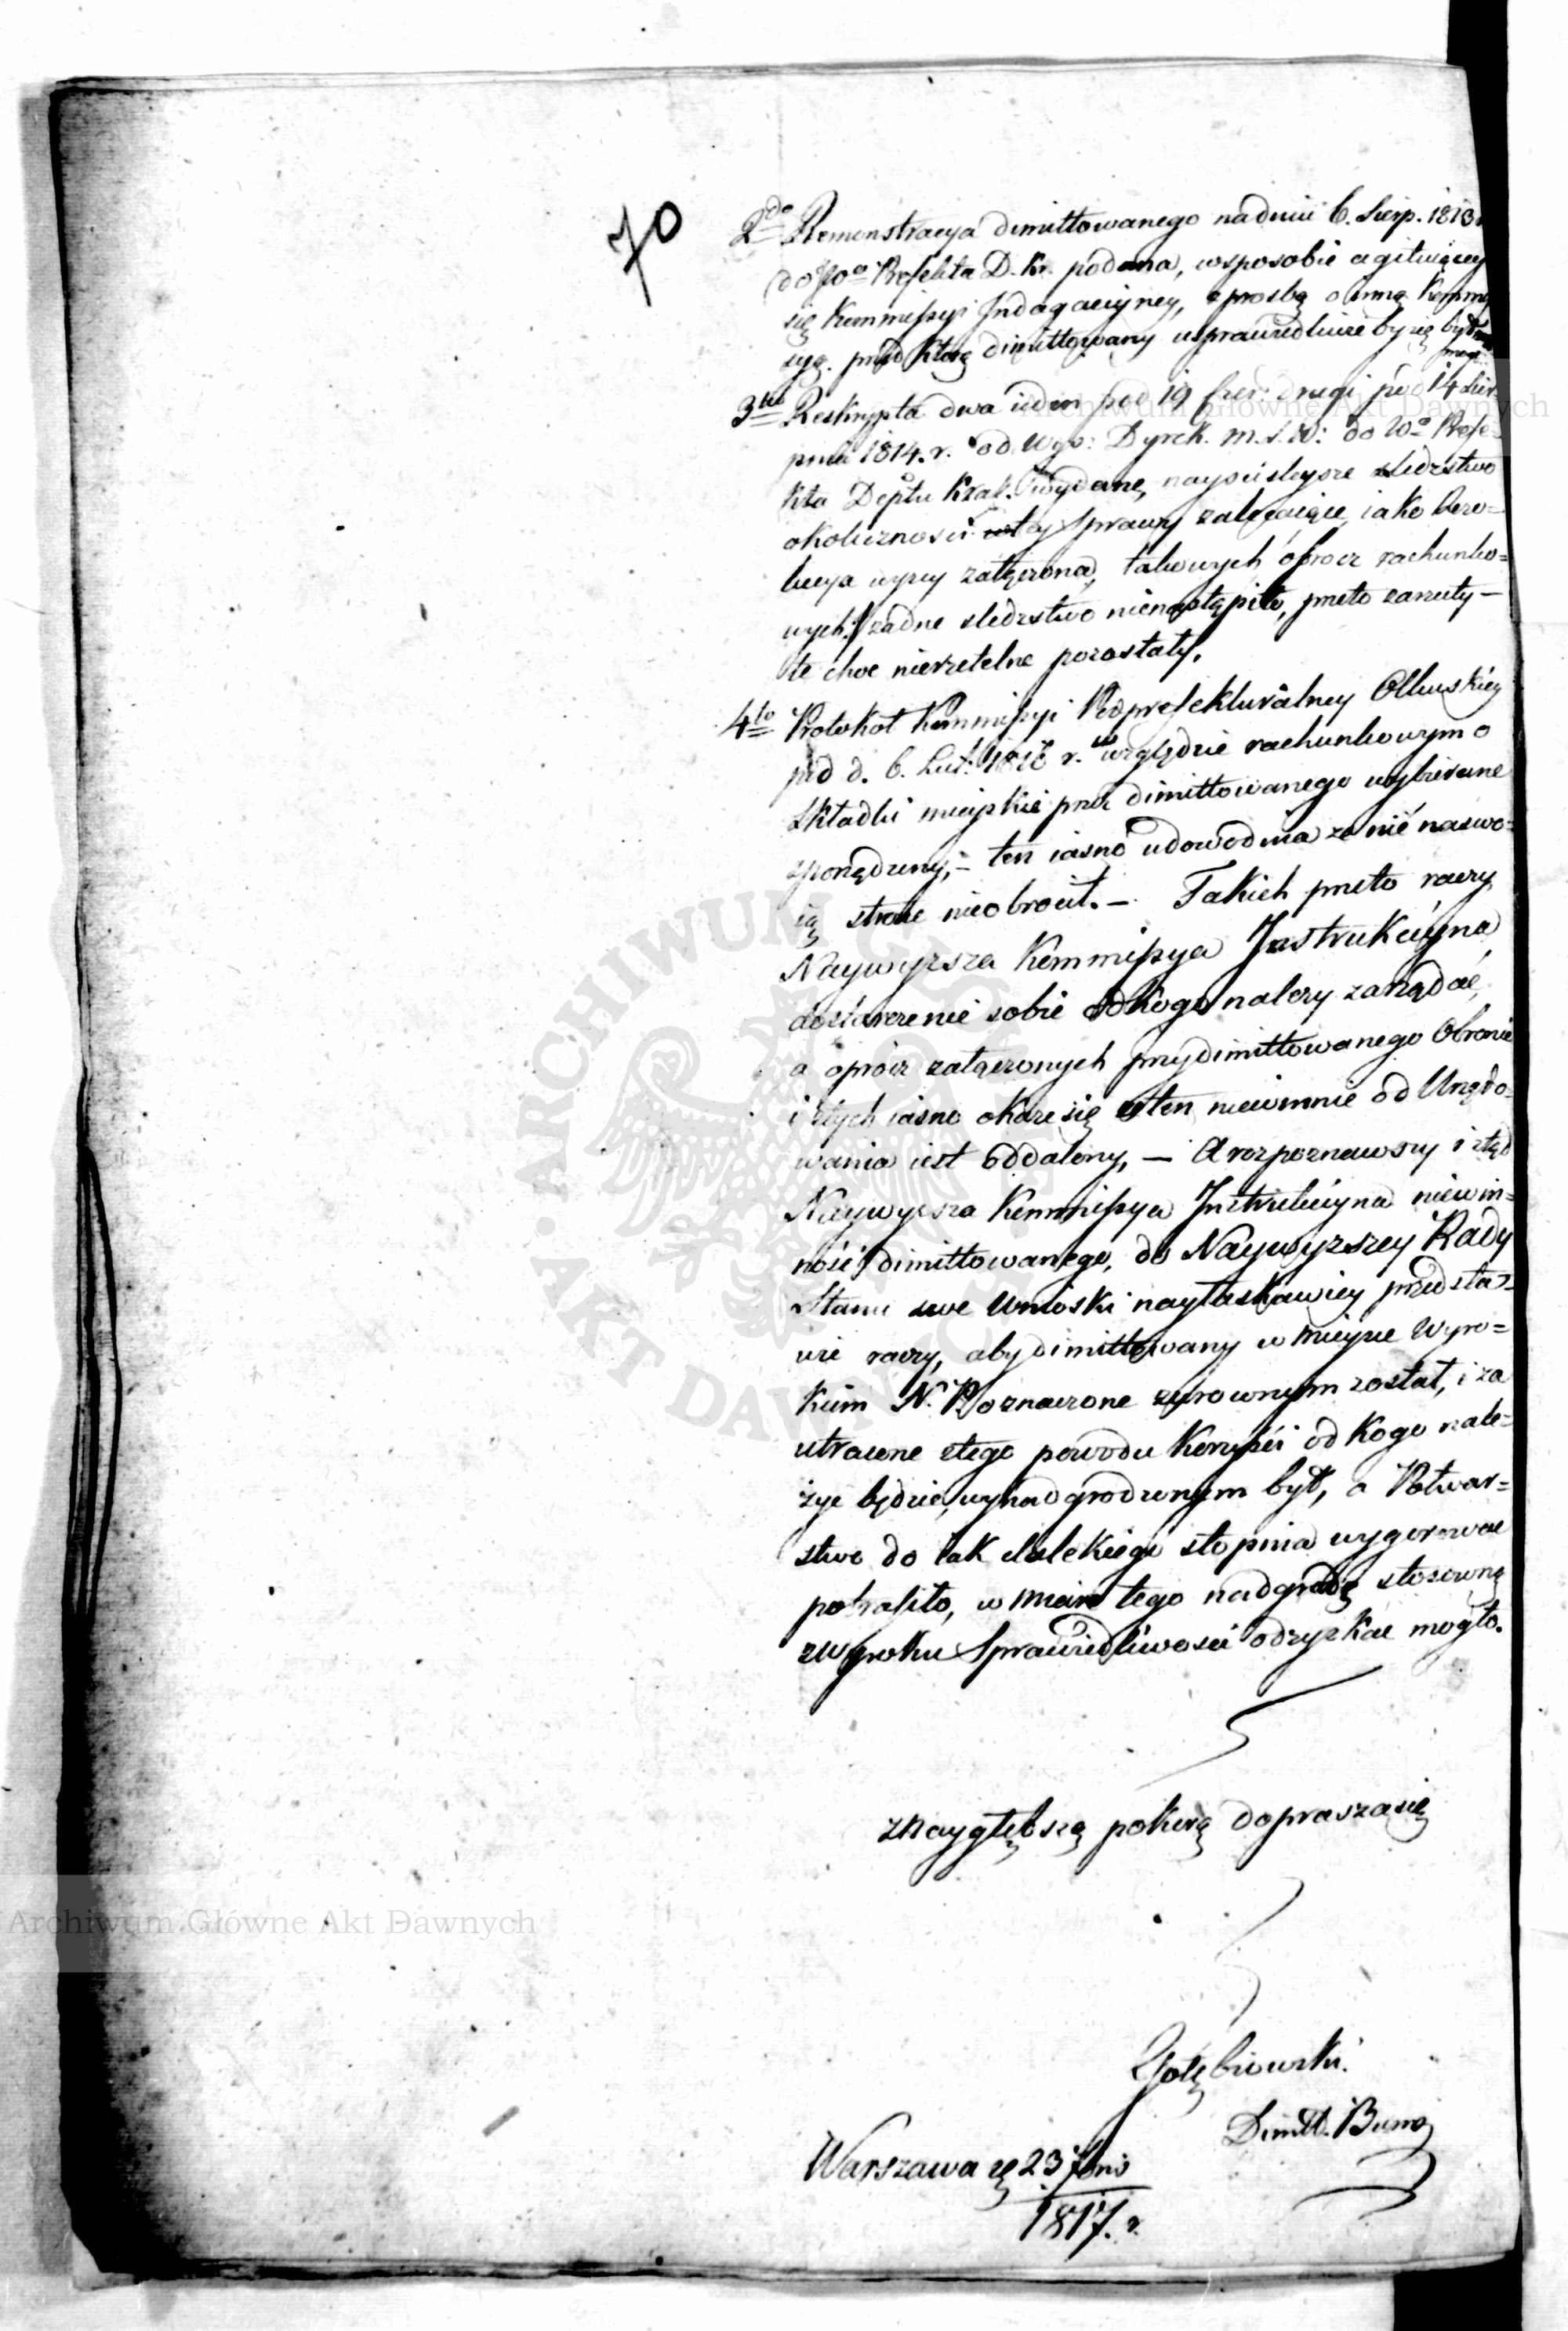 70
2do Remonstracya dimittowanego na dniu 6. Sierp. 1813
do JWo Prefekta D. Kr. podana, wsposobie agituiącey
się Kommissyi Indagacyiney, z prosbą o inną Kommis
syą. przed którą dimittowany usprawiedliwićby się był
mógł.
3tio Reskrypta dwa ieden pod 19 Czer: drugi pod 14 Sier
pnia 1814. r. od Wyd: Dyrek. M. S. W: do Wo Prefe-
kta Deptu Krak. wydane, nayscisleysze sledztwo
okoliczności tey Sprawy zalecaiące, iako Rezo-
lucya wyzey załączona, takowych oprocz rachunko=
wych, żadne sledztwo nienastąpiło, przeto zarzuty
te choc nierzetelne pozostały.
4to Protokoł Kommissyi Podprefekturalney Olkuskiey
pod d. 6. Lut: r. względzie rachunkowym o
składki mieyskie przez dimittowanego wybierane
sporządzony, – ten iasno udowodnia ze nic naswo=
ią stronę nieobrocił. – Takich przeto raczy
Naywyzsza Kommissya Instrukcyina
dostarczenie sobie od kogo nalezy zarządać,
a oprocz załączonych przy dimittowanego Obronie
i z tych iasno okaze się iz ten niewinnie od Urzędo-
wania iest oddalony, – A rozpoznawszy i ztąd
Naywyzsza Kommissya Instrukcyina niewin=
ność dimittowanego, do Naywyzszey Rady
Stanu swe Wnioski nayłaskawiey przedsta=
wić raczy, aby dimittowany w mieysce Wyro=
kiem N. P. oznaczone zwrownym został, i za
utracone ztego powodu Korzyści od Kogo nale=
żyć będzie, wynadgrodzonym był, a Potwar=
stwo do tak dalekiego stopnia wygorować
potrafiło, w miarę tego nadgrodę stosowną
zwyroku Sprawiedliwosci odzyskać mogło.
z naygłębszą pokorą dopraszasię
Gołębiowski.
Dimitt. Burm
Warszawa d 23 7bris
1817. r.
Archiwum Główne Akt Dawnych
Archiwum Główne Akt Dawnych
ARCHIWUM GŁÓWNE AKT DAWNYCH